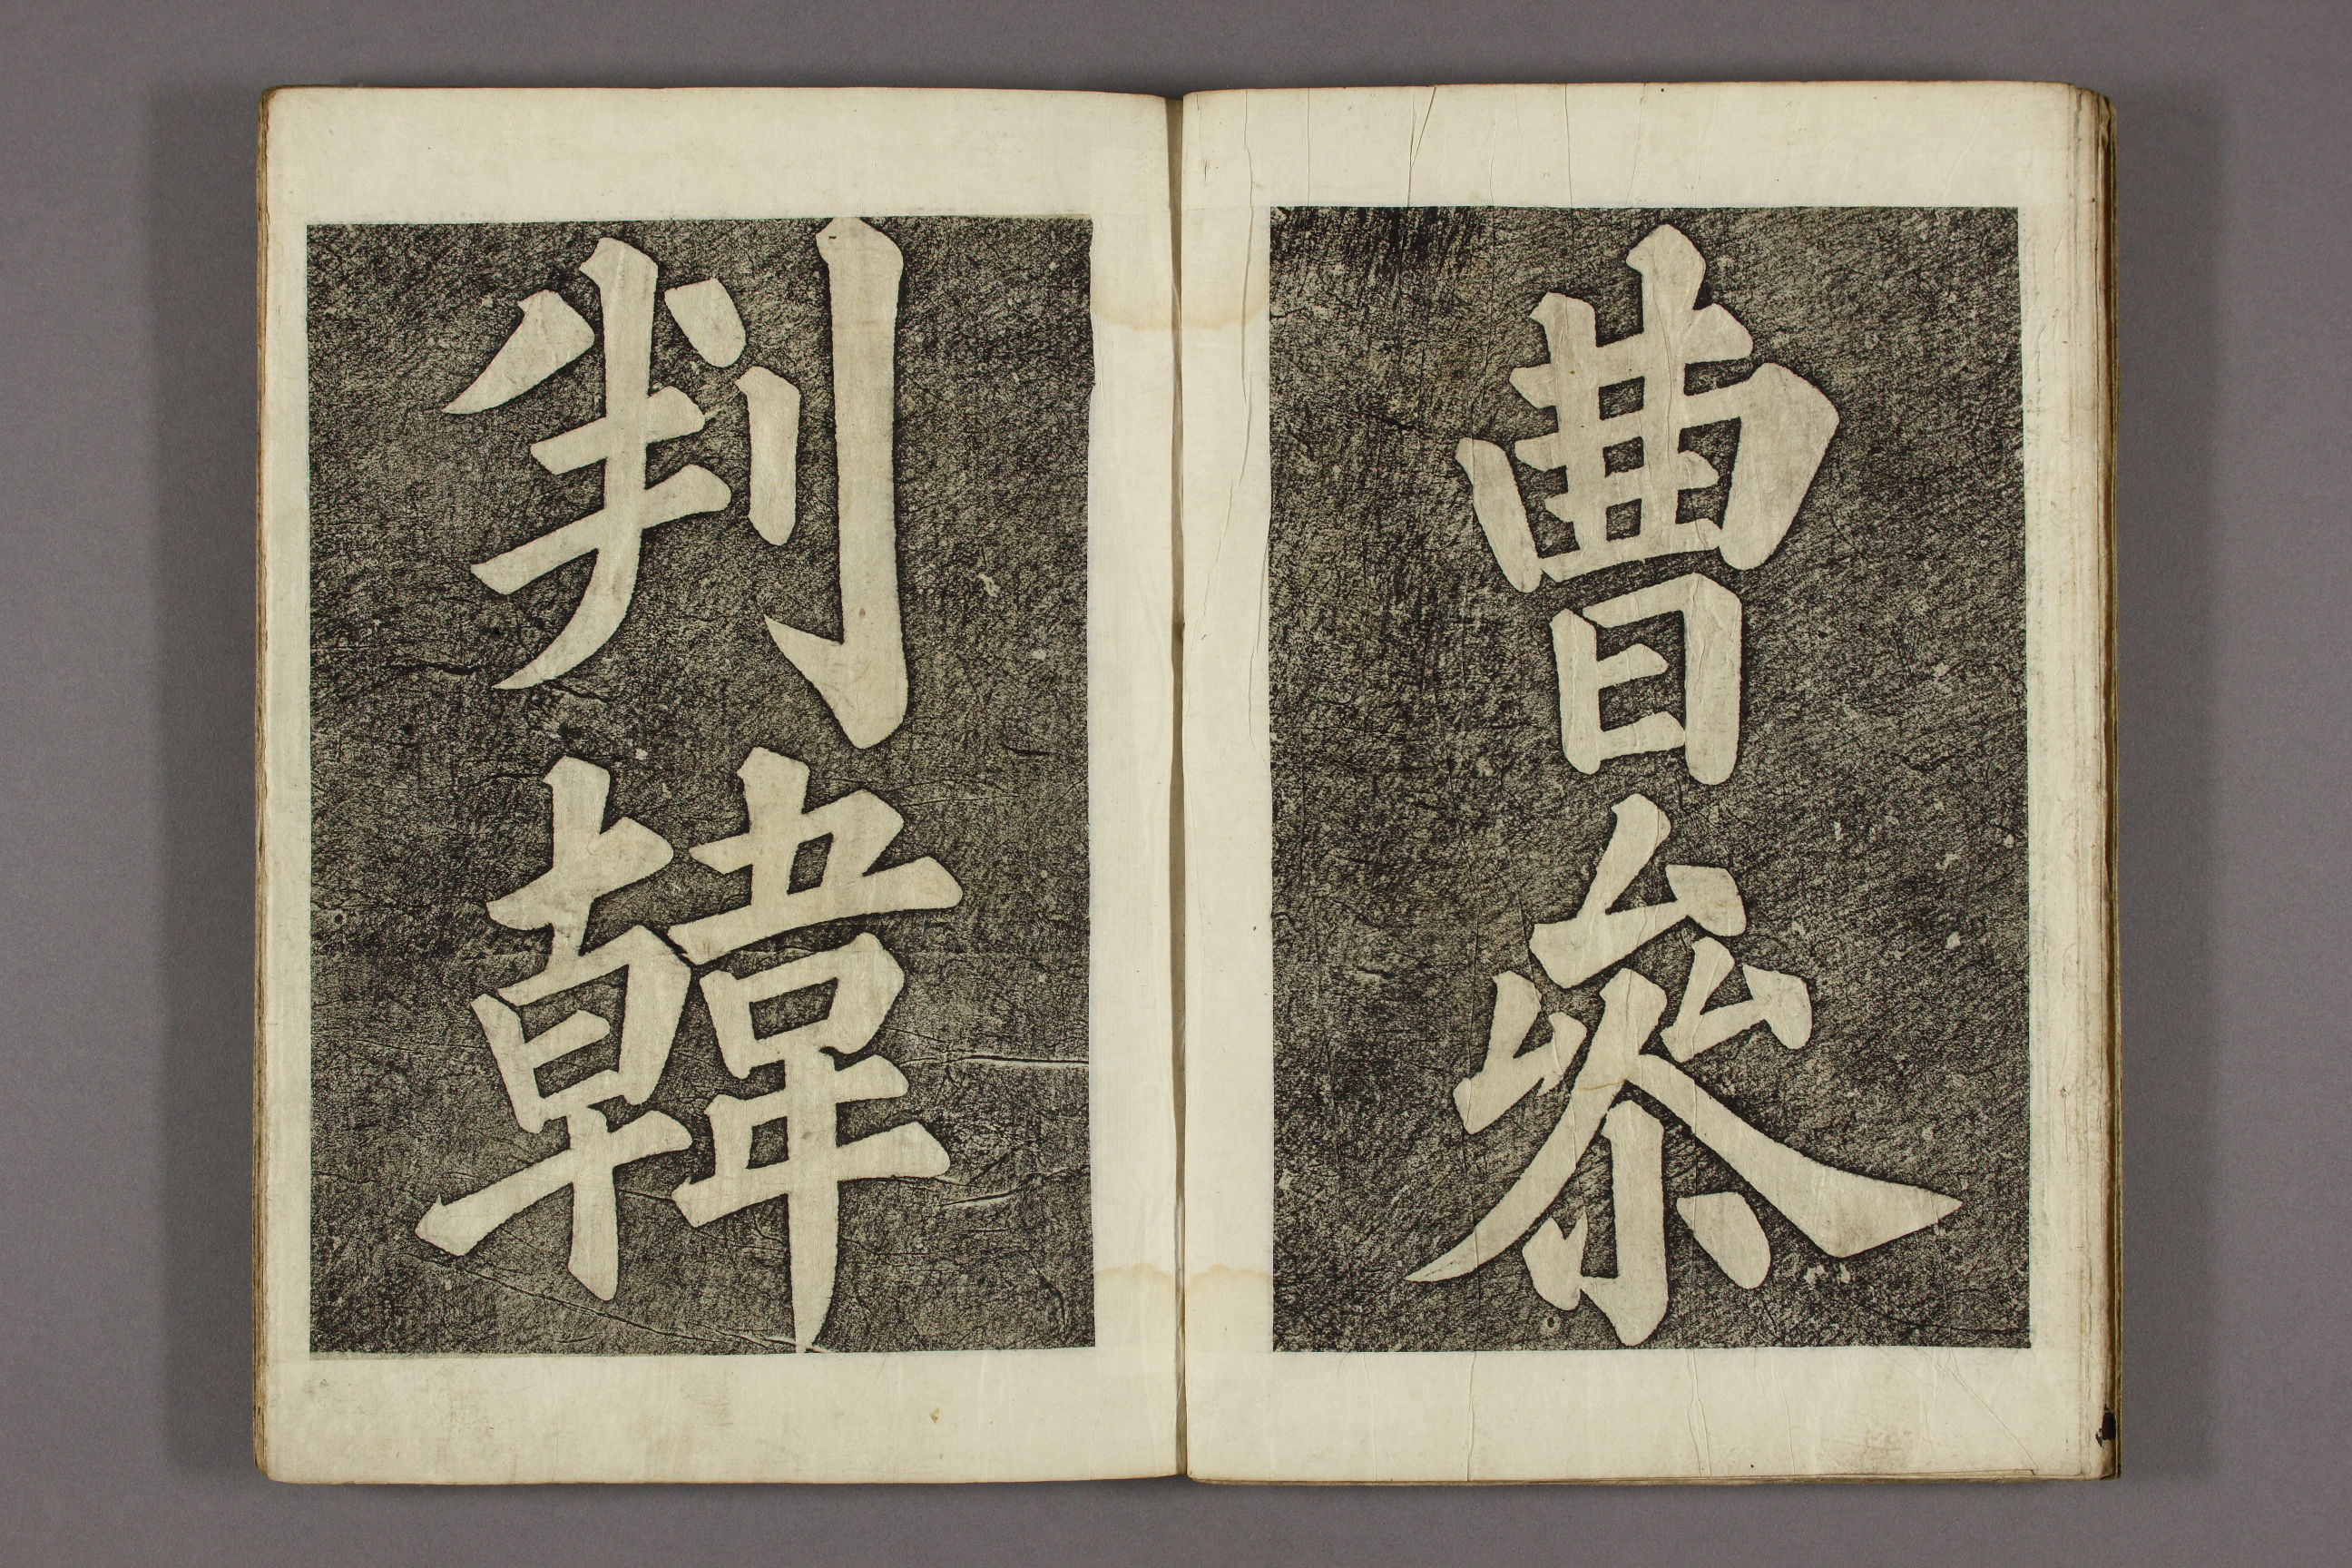 曹參
判韓